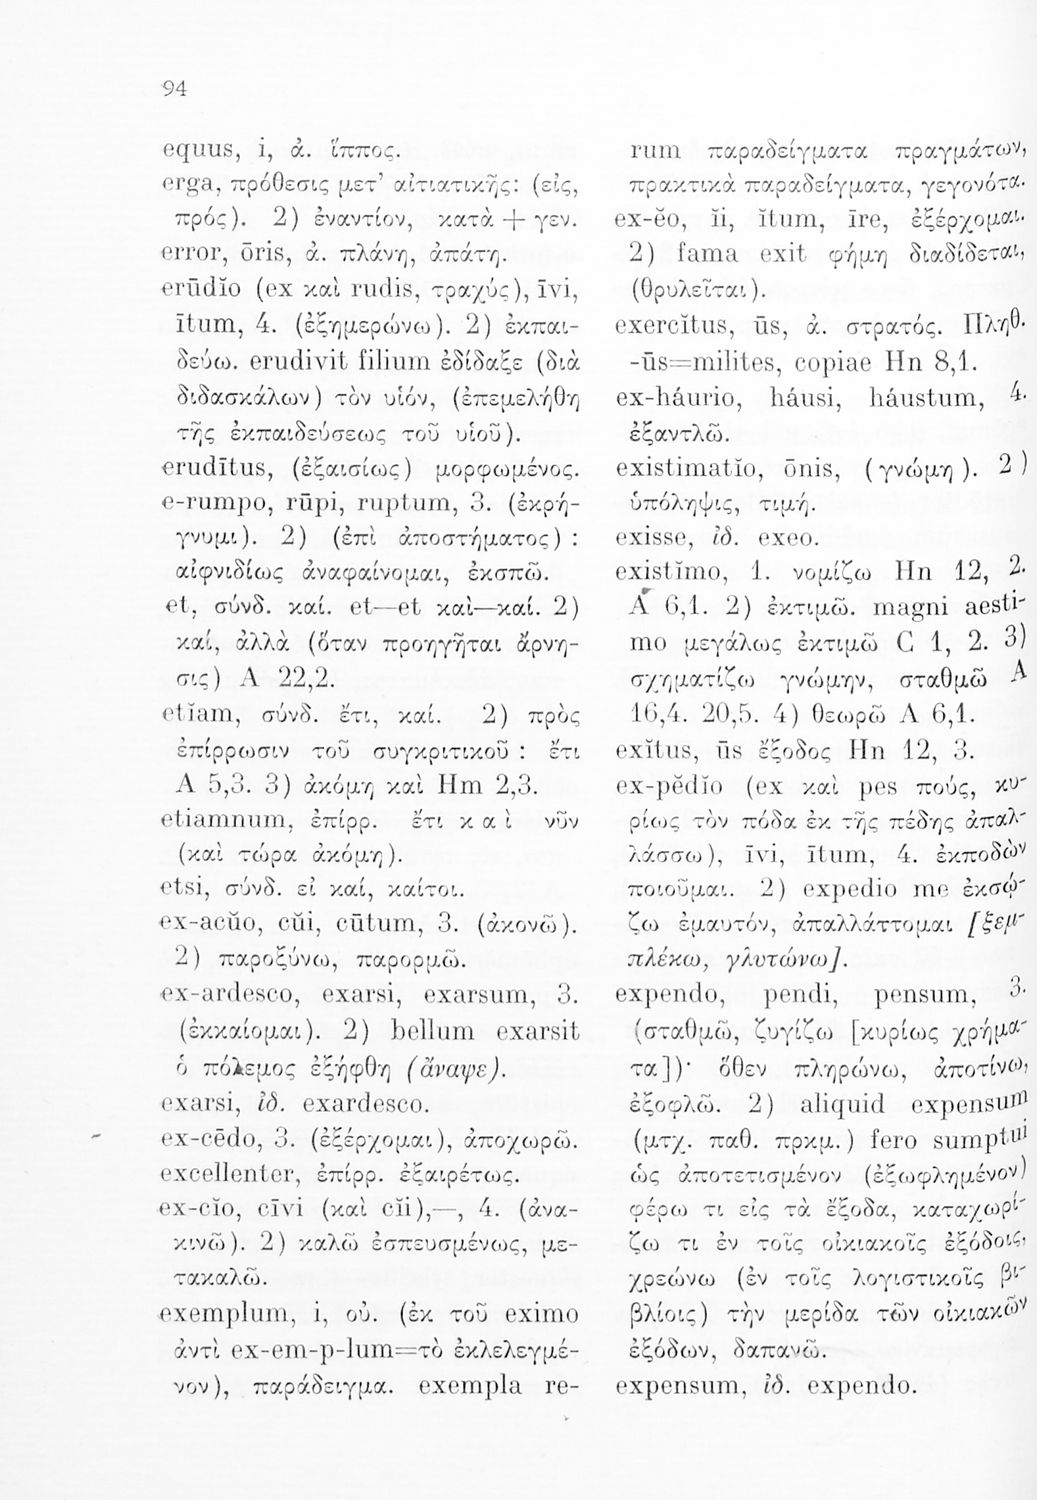 94
equus, i, ἀ. ἵππος.
erga, πρόθεσις μετ’ αἰτιατικῆς: (εἰς,
πρός). 2) ἐναντίον, κατὰ + γεν.
error, ōris, ἀ. πλάνη, ἀπάτη.
erŭdĭo (ex καὶ rudis, τραχύς), īvi,
ītum, 4. (ἐξημερώνω). 2) ἐκπαι-
δεύω. erudivit filium ἐδίδαξε (διὰ
διδασκάλων) τὸν υἱόν, (ἐπεμελήθη
τῆς ἐκπαιδεύσεως τοῦ υἱοῦ).
erudītus, (ἐξαισίως) μορφωμένος.
e-rumpo, rūpi, ruptum, 3. (ἐκρή-
γνυμι). 2) (ἐπὶ ἀποστήματος) :
αἰφνιδίως ἀναφαίνομαι, ἐκσπῶ.
et, σύνδ. καί. et—et καὶ—καί. 2)
καί, ἀλλὰ (ὅταν προηγῆται ἄρνη-
σις) A 22,2.
etĭam, σύνδ. ἔτι, καί. 2) πρὸς
ἐπίρρωσιν τοῦ συγκριτικοῦ : ἔτι
A 5,3. 3) ἀκόμη καὶ Hm 2,3.
etiamnum, ἐπίρρ. ἔτι κ α ὶ νῦν
(καὶ τώρα ἀκόμη).
etsi, σύνδ. εἰ καί, καίτοι.
ex-acŭo, cŭi, cūtum, 3. (ἀκονῶ).
2) παροξύνω, παρορμῶ.
ex-ardesco, exarsi, exarsum, 3.
(ἐκκαίομαι). 2) bellum exarsit
ὁ πόλεμος ἐξήφθη (ἄναψε).
exarsi, ἰδ. exardesco.
ex-cēdo, 3. (ἐξέρχομαι), ἀποχωρῶ.
excellenter, ἐπίρρ. ἐξαιρέτως.
ex-cĭo, cīvi (καὶ cĭi),—, 4. (ἀνα-
κινῶ). 2) καλῶ ἐσπευσμένως, με-
τακαλῶ.
exemplum, i, οὐ. (ἐκ τοῦ eximo
ἀντὶ ex-em-p-lum=τὸ ἐκλελεγμέ-
νον), παράδειγμα. exempla re-
rum παραδείγματα πραγμάτων,
πρακτικὰ παραδείγματα, γεγονότα.
ex-ĕo, ĭi, ĭtum, īre, ἐξέρχομαι.
2) fama exit φήμη διαδίδεται,
(θρυλεῖται).
exercĭtus, ūs, ἀ. στρατός. Πληθ.
-ūs=milites, copiae Hn 8,1.
ex-háurio, háusi, háustum, 4.
ἐξαντλῶ.
existimatĭo, ōnis, (γνώμη). 2)
ὑπόληψις, τιμή.
exisse, ἰδ. exeo.
existĭmo, 1. νομίζω Hn 12, 2.
A 6,1. 2) ἐκτιμῶ. magni aesti-
mo μεγάλως ἐκτιμῶ C 1, 2. 3)
σχηματίζω γνώμην, σταθμῶ A
16,4. 20,5. 4) θεωρῶ A 6,1.
exĭtus, ūs ἔξοδος Hn 12, 3.
ex-pĕdĭo (ex καὶ pes πούς, κυ-
ρίως τὸν πόδα ἐκ τῆς πέδης ἀπαλ-
λάσσω), īvi, ītum, 4. ἐκποδὼν
ποιοῦμαι. 2) expedio me ἐκσώ-
ζω ἐμαυτόν, ἀπαλλάττομαι [ξεμ-
πλέκω, γλυτώνω].
expendo, pendi, pensum, 3.
(σταθμῶ, ζυγίζω [κυρίως χρήμα-
τα])· ὅθεν πληρώνω, ἀποτίνω,
ἐξοφλῶ. 2) aliquid expensum
(μτχ. παθ. πρκμ.) fero sumptui
ὡς ἀποτετισμένον (ἐξωφλημένον)
φέρω τι εἰς τὰ ἔξοδα, καταχωρί-
ζω τι ἐν τοῖς οἰκιακοῖς ἐξόδοις,
χρεώνω (ἐν τοῖς λογιστικοῖς βι-
βλίοις) τὴν μερίδα τῶν οἰκιακῶν
ἐξόδων, δαπανῶ.
expensum, ἰδ. expendo.